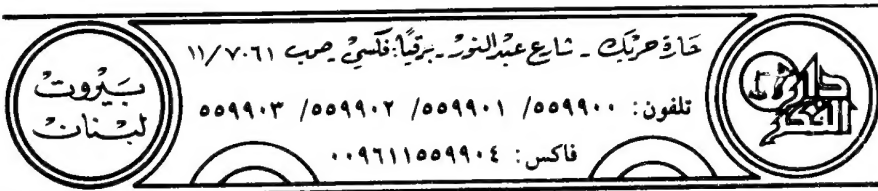 حَارَة حرَيك - شارع عبْد النور - برقيًا: فكسيْ - صرب ١١/٧٠٦١
تلفون: ٥٥٩٩٠٠/ ٥٥٩٩٠١/ ٥٥٩٩٠٢/ ٥٥٩٩٠٣
فاكس: ٠٠٩٦١١٥٥٩٩٠٤
بَيروت
لبنان
دار الفكر